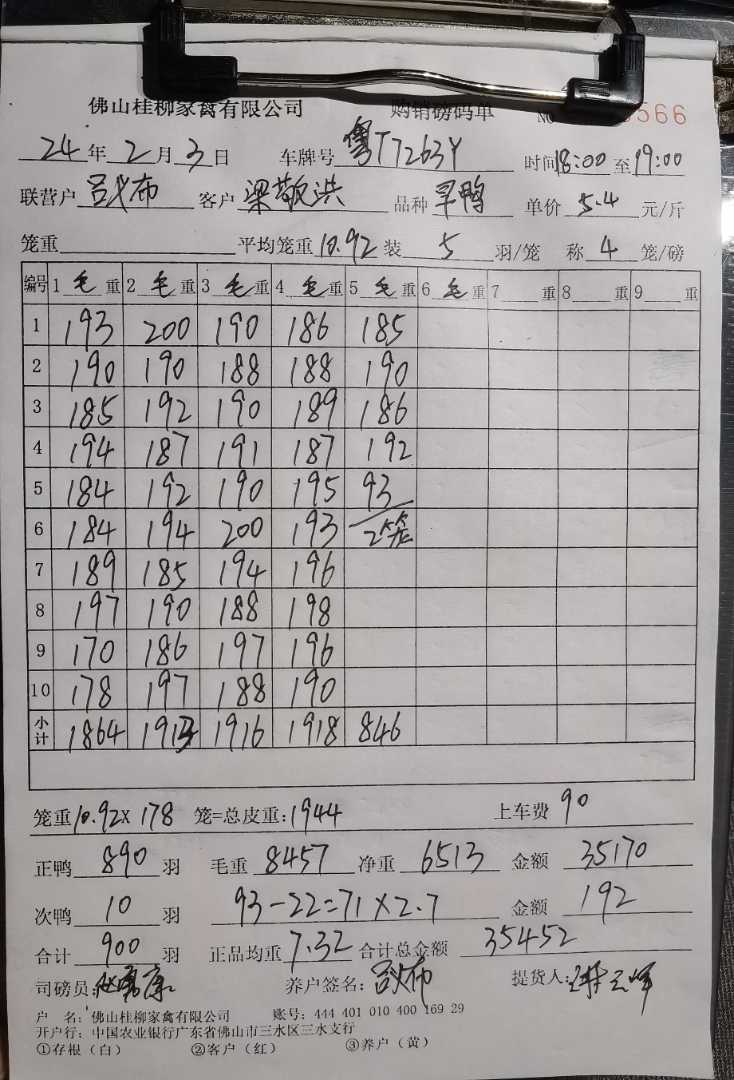 佛山桂柳家禽有限公司 购销磅码单 NO 566
24年2月3日 车牌号 粤T7263Y 时间18:00至19:00
联营户 吕戈布 客户 梁敬洪 品种 旱鸭 单价 5.4 元/斤
笼重 平均笼重 10.92 装 5 羽/笼 称 4 笼/磅
编号 1 毛 重 2 毛 重 3 毛 重 4 毛 重 5 毛 重 6 毛 重 7 重 8 重 9 重
1 193 200 190 186 185
2 190 190 188 188 190
3 185 192 190 189 186
4 194 187 191 187 192
5 184 192 190 195 93
6 184 194 200 193 2笼
7 189 185 194 196
8 197 190 188 198
9 170 186 197 196
10 178 197 188 190
小计 1864 1913 1916 1918 846
笼重 10.92X 178 笼=总皮重: 1944 上车费 90
正鸭 890 羽 毛重 8457 净重 6513 金额 35170
次鸭 10 羽 93-22=71X2.7 金额 192
合计 900 羽 正品均重 7.32 合计总金额 35452
司磅员: 养户签名: 提货人:
户 名: 佛山桂柳家禽有限公司 账号: 444 401 010 400 169 29
开户行: 中国农业银行广东省佛山市三水区三水支行
①存根（白） ②客户（红） ③养户（黄）